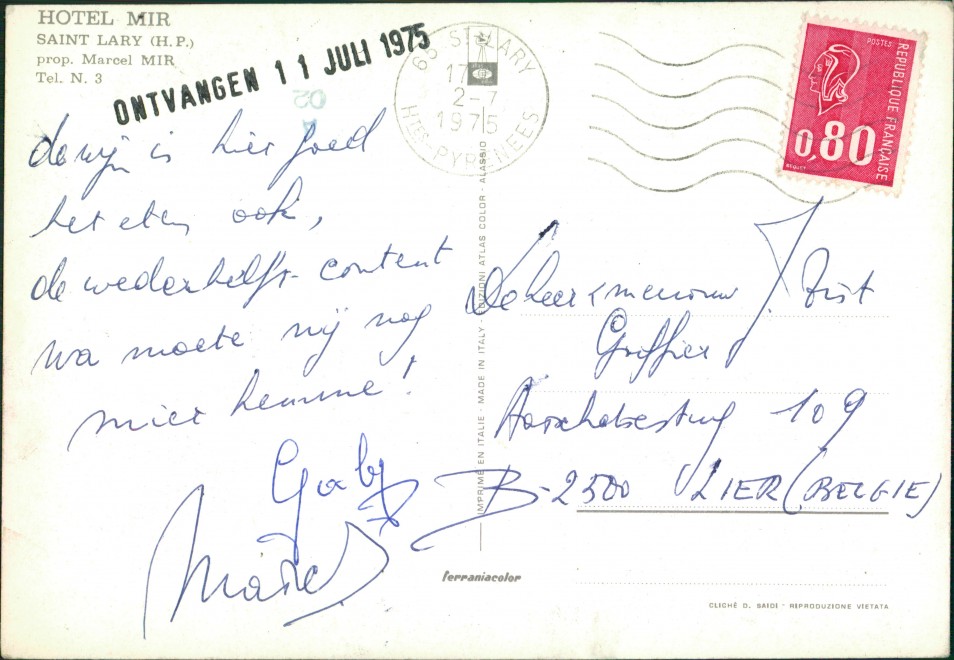 HOTEL MIR
SAINT LARY (H. P.)
prop. Marcel MIR
Tel. N. 3
ONTVANGEN 11 JULI 1975
65 ST-LARY
17
2-7
1975
HTES-PYRENEES
POSTES
REPUBLIQUE FRANÇAISE
0,80
BEQUET
de wijn is hier goed
het eten ook,
de wederhelft content
wa moete wij nog
mier hemme!
Gaby
Marcel
De heer & mevrouw J.
Griffier
109
B-2500 LIER (BELGIE)
IMPRIMÉ EN ITALIE - MADE IN ITALY - EDIZIONI ATLAS COLOR - ALASSIO
ferraniacolor
CLICHÉ D. SAIDI - RIPRODUZIONE VIETATA